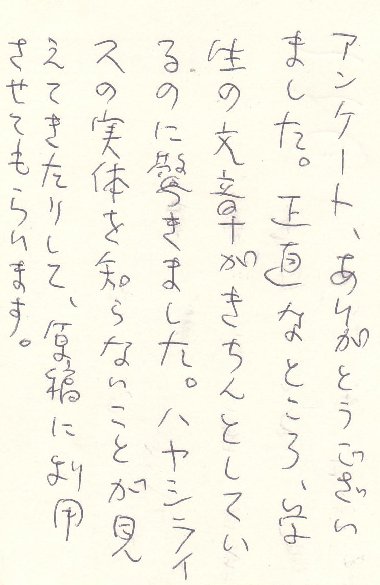 アンケート、ありがとうござい
ました。正直なところ、学
生の文章がきちんとしてい
るのに驚きました。ハヤシライ
スの実体を知らないことが見
えてきたりして、原稿に利用
させてもらいます。